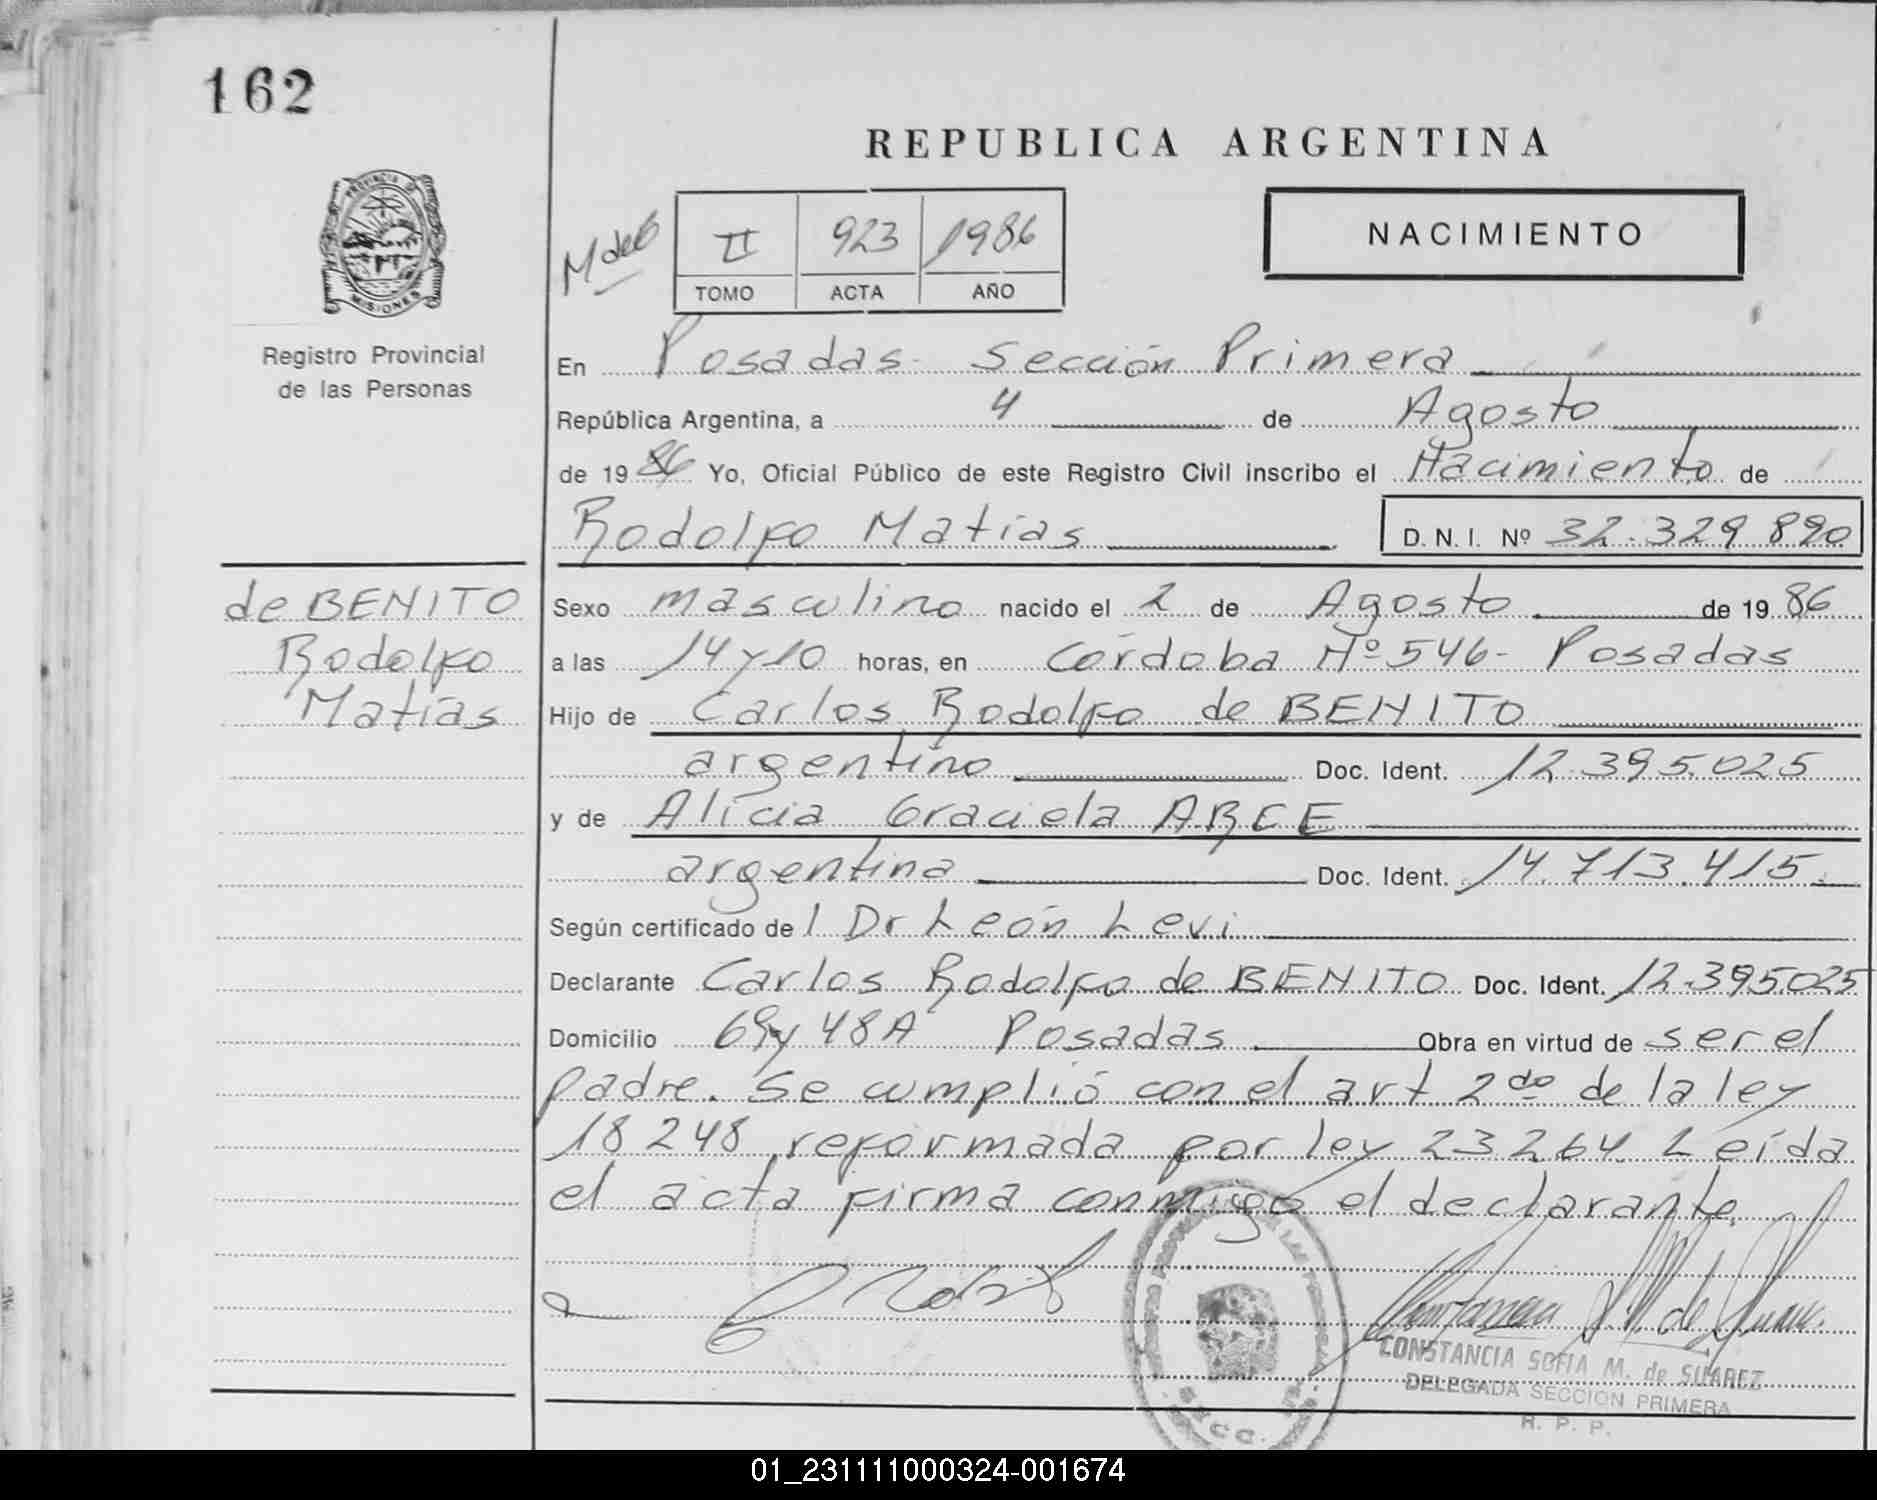 162
REPUBLICA ARGENTINA
PROVINCIA DE
MISIONES
Registro Provincial
de las Personas
II 923 1986
TOMO ACTA AÑO
NACIMIENTO
En Posadas - Sección Primera
República Argentina, a 4 de Agosto
de 1986 Yo, Oficial Público de este Registro Civil inscribo el Nacimiento de
Rodolfo Matías D. N. I. Nº 32.329.890
de BENITO
Rodolfo
Matías
Sexo masculino nacido el 2 de Agosto de 1986
a las 14 y 10 horas, en Córdoba Nº 546 - Posadas
Hijo de Carlos Rodolfo de BENITO
argentino Doc. Ident. 12.395.025
y de Alicia Graciela ARCE
argentina Doc. Ident. 14.713.415.
Según certificado del Dr León Levi
Declarante Carlos Rodolfo de BENITO Doc. Ident. 12.395.025
Domicilio 69 y 48A Posadas Obra en virtud de ser el
padre. Se cumplió con el art 2do de la ley
18248 reformada por ley 23264. Leída
el acta firma conmigo el declarante.
CONSTANCIA SOFIA M. de SUAREZ
DELEGADA SECCION PRIMERA
R. P. P.
SECC. 1ª
01_231111000324-001674